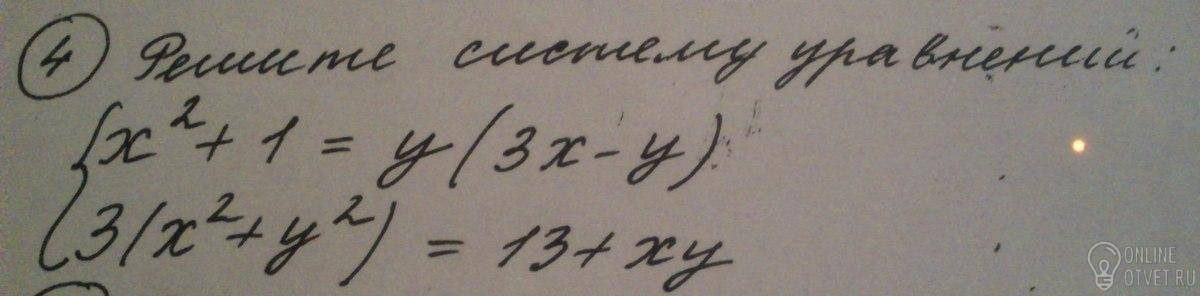 4 Решите систему уравнений:
x² + 1 = y (3x - y)
3(x² + y²) = 13 + xy
ONLINE
OTVET.RU